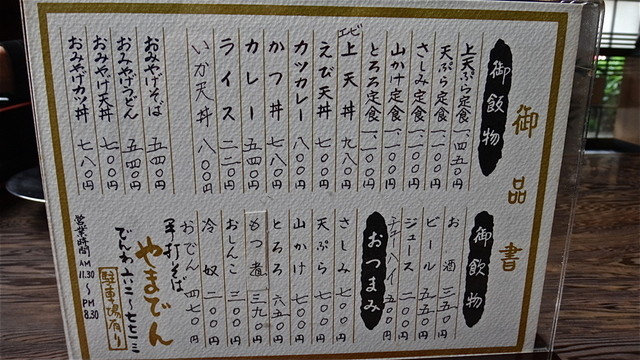 御品書
御飯物
上天ぷら定食 一、四五〇円
天ぷら定食 一、一〇〇円
さしみ定食 一、一〇〇円
山かけ定食 一、一〇〇円
とろろ定食 一、一〇〇円
エビ
上天丼 九八〇円
えび天丼 七〇〇円
カツカレー 八〇〇円
かつ丼 七八〇円
カレー 五四〇円
ライス 二二〇円
いか天丼 八〇〇円
おみやげそば 五四〇円
おみやげうどん 五四〇円
おみやげ天丼 七八〇円
おみやげカツ丼 七八〇円
御飲物
お酒 三五〇円
ビール 五五〇円
ジュース 二〇〇円
チューハイ 五〇〇円
おつまみ
さしみ 七〇〇円
天ぷら 七〇〇円
山かけ 七〇〇円
とろろ 六五〇円
もつ煮 三九〇円
おしんこ 三〇〇円
冷奴 二〇〇円
おでん 四七〇円
手打そば
やまでん
でんわ 六二〜七七一二
駐車場有り
営業時間 AM 11.30 〜 PM 8.30